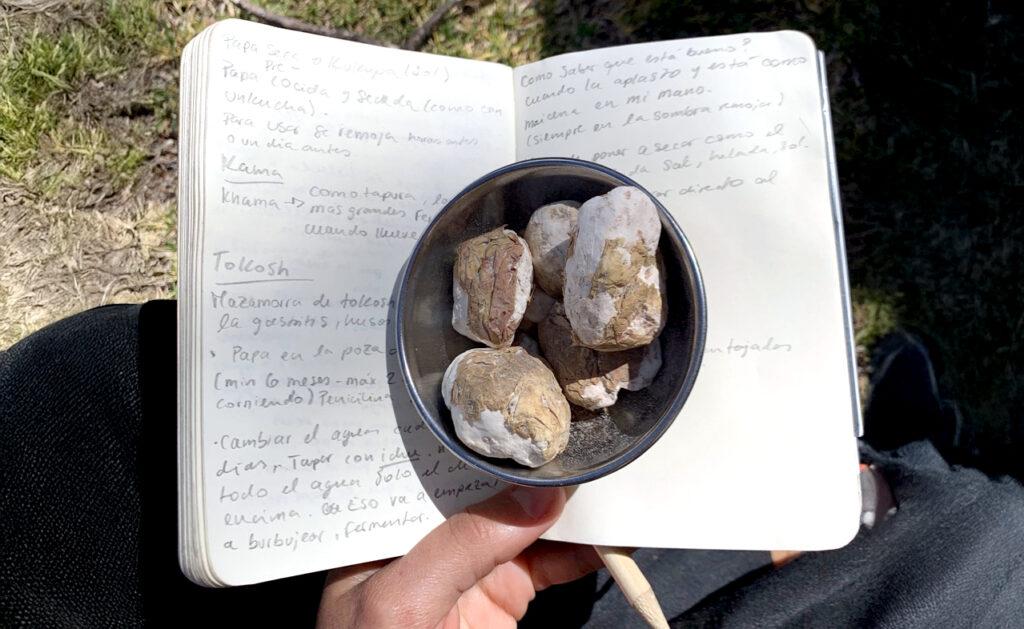 Papa Seca o
Papa cocida y secada (como con
para usar se remoja horas antes
o un dia antes
Kama
Khama → como tapura, la
mas grandes
cuando llueve
Tolkosh
Mazamorra de tolkosh
la gastritis,
Papa en la poza
(min 6 meses - máx 2
corriendo) Penicilina
Cambiar el agua cad
dias, Tapar con ichu.
todo el agua solo el de
encima. Eso va a empezar
a burbujear, fermentar.
Como saber que está bueno?
cuando la aplasto y está como
maicena en mi mano.
(siempre en la sombra remojar)
poner a secar como el
da sal, helada, sol.
directo al